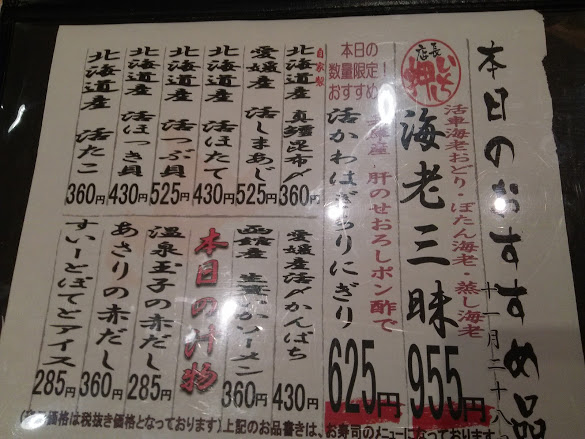 本日のおすすめ品
十一月二十八
店長
いち押
活車海老おどり・ぼたん海老・蒸し海老
海老三昧
955円
産・肝のせおろしポン酢で
本日の
数量限定！
おすすめ！
活かわはぎちりにぎり
625円
自家製
北海道産 真鱈昆布〆
360円
愛媛産 活しまあじ
525円
北海道産 活ほたて
430円
北海道産 活つぶ貝
525円
北海道産 活ほっき貝
430円
北海道産 活たこ
360円
愛媛産活〆かんぱち
430円
函館産 生真いかソーメン
360円
本日の汁物
温泉玉子の赤だし
285円
あさりの赤だし
360円
すいーとぽてとアイス
285円
価格は税抜き価格となっております）上記のお品書きは、お寿司のメニューになっております